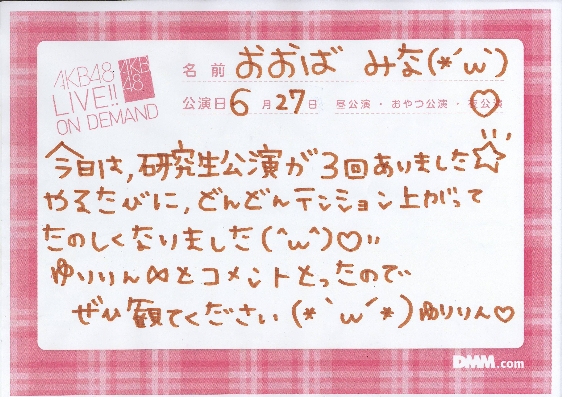 AKB48
LIVE!!
ON DEMAND
AKB
48
名前 おおば みな(*´ω`)
公演日 6月27日 昼公演・おやつ公演・夜公演
今日は,研究生公演が3回ありました☆
やるたびに,どんどんテンション上がって
たのしくなりました(^ω^)♡!!
ゆりりん∞とコメントとったので
ぜひ観てください(*`ω´*)ゆりりん♡
DMM.com